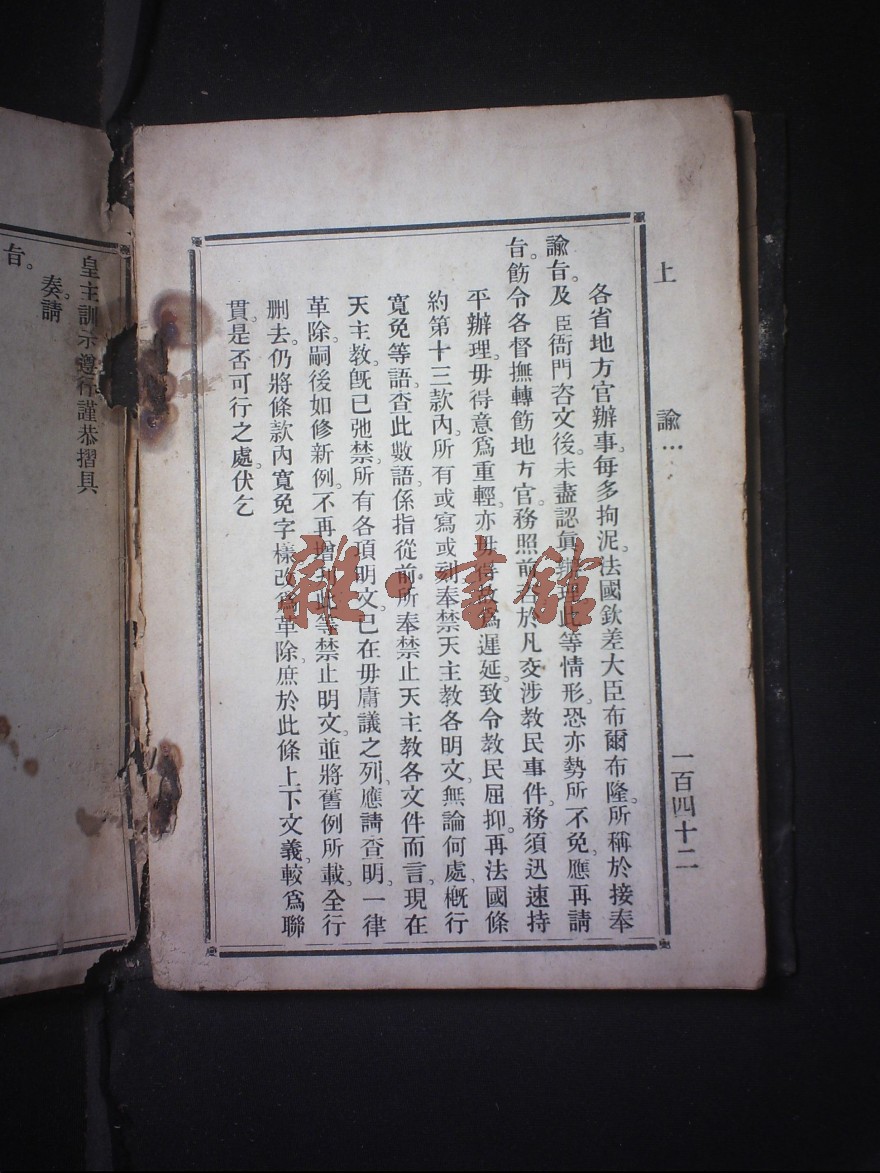 上 諭⋯ 一百四十二
各省地方官辦事。每多拘泥。法國欽差大臣布爾布隆。所稱於接奉
諭旨。及臣衙門咨文後。未盡認眞辦理。此等情形。恐亦勢所不免。應再請
旨。飭令各督撫轉飭地方官。務照前 於凡交涉教民事件。務須迅速持
平辦理。毋得意爲重輕。亦毋得 爲遲延。致令教民屈抑。再法國條
約第十三款內。所有或寫或刻奉禁天主教各明文。無論何處。槪行
寬免等語。查此數語。係指從前所奉禁止天主教各文件而言。現在
天主教。旣已弛禁。所有各項明文。已在毋庸議之列。應請查明。一律
革除。嗣後如修新例。不再增刊此等禁止明文。並將舊例所載。全行
删去。仍將條款內寬免字樣。改爲革除。庶於此條上下文義。較爲聯
貫。是否可行之處。伏乞
皇主訓示遵行。謹恭摺具
奏。請
旨。
雜·書館